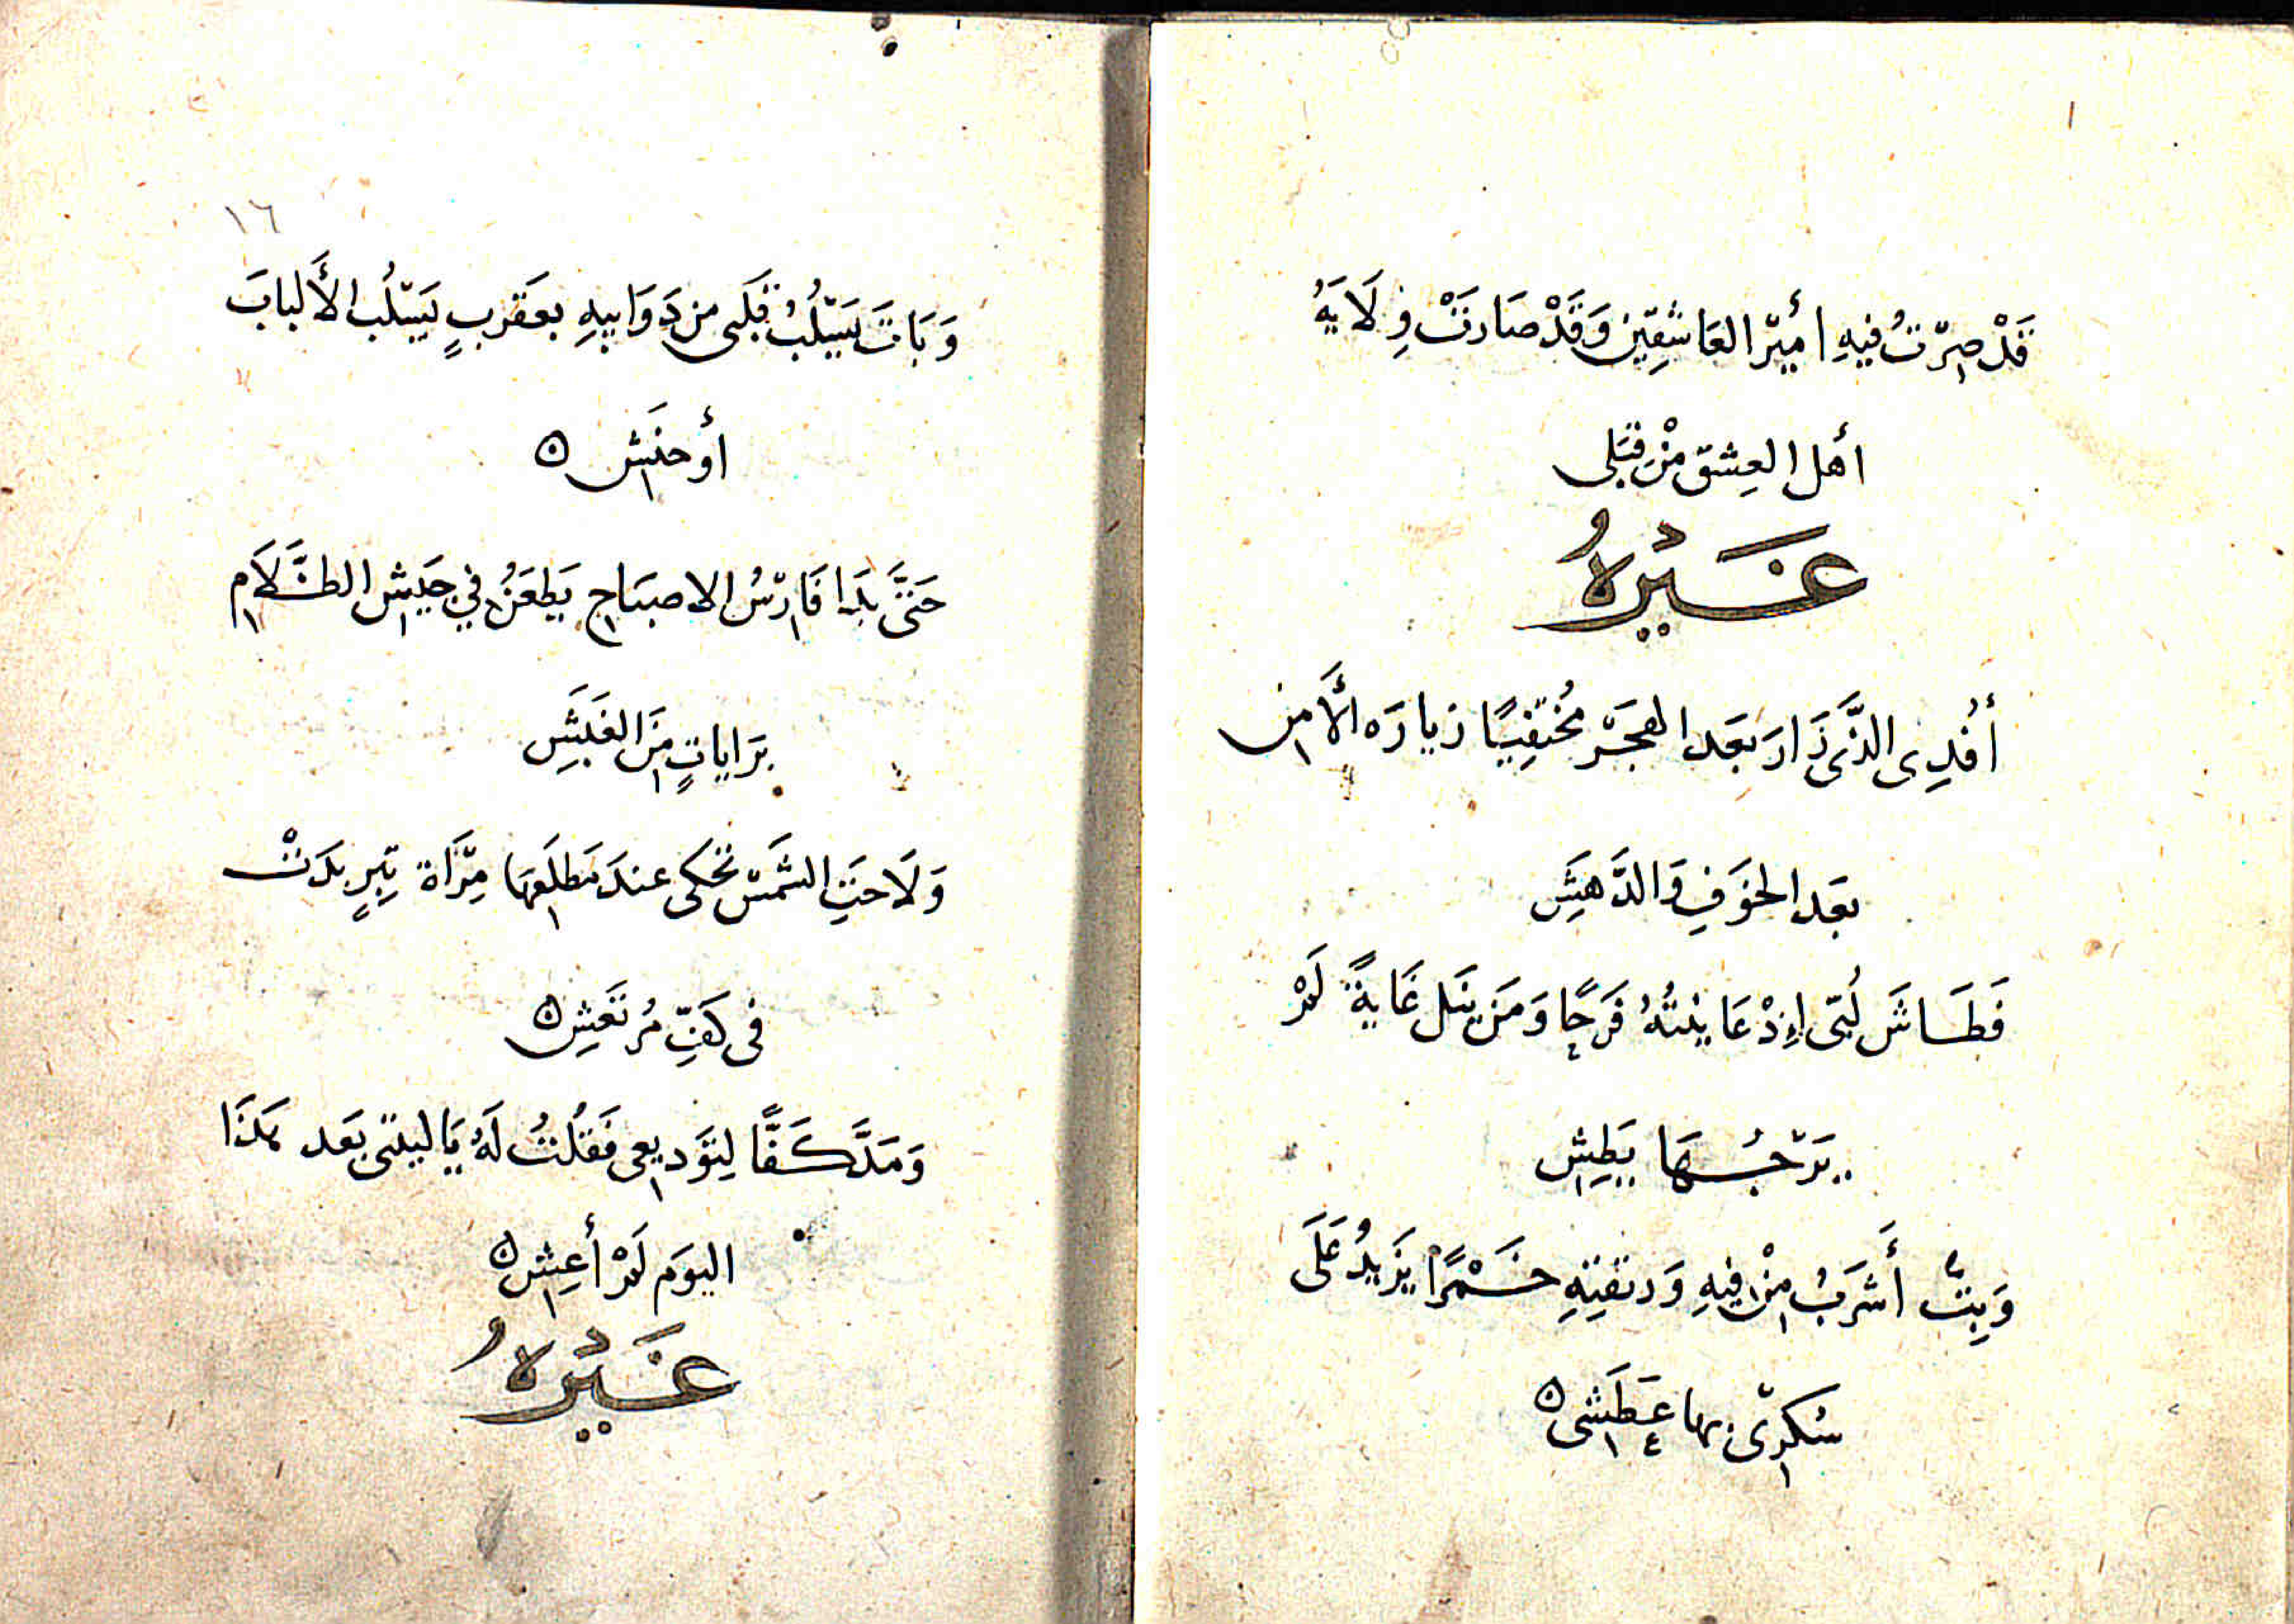 قَدْ صِرْتُ فِيهِ أَمِيرَ العَاشِقِينَ وَقَدْ صَارَتْ وِلَايَةُ
أهل العِشقِ مِنْ قَبَلى
غَيْرُهُ
أَفْدِى الذَّى زَارَ بَعَد الهَجَرْ مُختَفِيًا زيارَه الأَمِن
بعَد الخوَفِ وَالدَّهَشِ
فَطَاشَ لُبّى إِذْ عَايَنتُهُ فَرَحًا وَمَن يَنَل غَايةً لَمْ
يَرْجُهَا يَطِشِ
وَبِتُّ أَشرَبُ مِنْ فِيهِ وَريقتِهِ خَمْرًا يَزَيدُ عَلَى
سُكرِىّ بها عَطَشى
١٦
وَبَاتَ يَسَلُبُ قَلَبى من ذَوَايبِهِ بعَقرَبٍ يَسلُب الأَلبابَ
أو حنَشِ
حَتىَّ بَدا فَارسُ الاصبَاحِ يَطعَنُ في جَيشِ الظَّلَامِ
برَاياتٍ مِنَ الغَبَشِ
وَلَاحتِ الشَّمسُ تحكى عندَ مَطلَعها مِرَّاةَ تِبرٍ بدَتْ
فى كَفِّ مُرتَعَشِ
وَمَدَّ كَفًّا لِتوَديعِى فَقُلتُ لَهُ يَاليتنى بعَد هَذَا
اليوَم لَمْ أَعِشِ
غَيْرُهُ